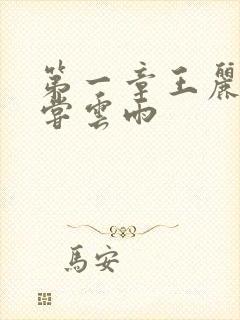 第一章王麗
嘗雲雨
馬安